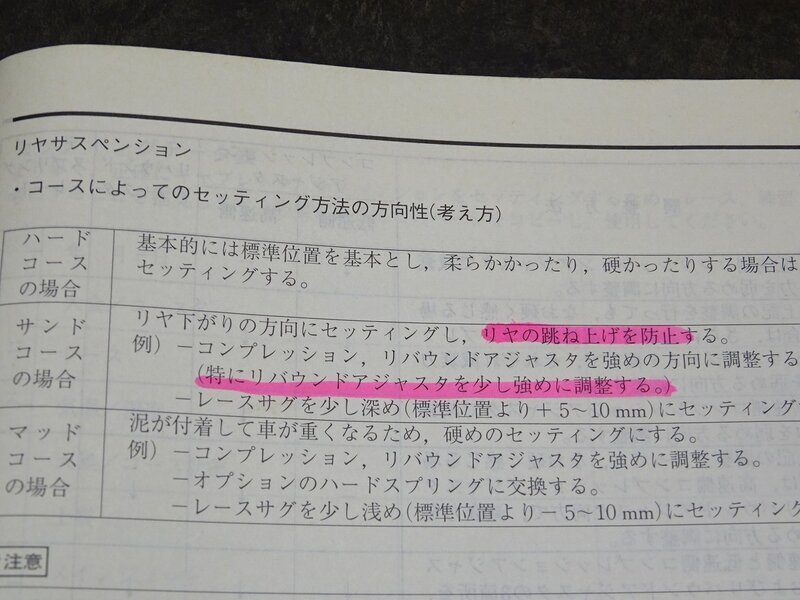 リヤサスペンション
・コースによってのセッティング方法の方向性(考え方)
ハード
コース
の場合
基本的には標準位置を基本とし，柔らかかったり，硬かったりする場合は
セッティングする。
サンド
コース
の場合
リヤ下がりの方向にセッティングし，リヤの跳ね上げを防止する。
例）－コンプレッション，リバウンドアジャスタを強めの方向に調整する
(特にリバウンドアジャスタを少し強めに調整する。)
－レースサグを少し深め(標準位置より＋5～10 mm)にセッティング
マッド
コース
の場合
泥が付着して車が重くなるため，硬めのセッティングにする。
例）－コンプレッション，リバウンドアジャスタを強めに調整する。
－オプションのハードスプリングに交換する。
－レースサグを少し浅め(標準位置より－5～10 mm)にセッティング
注意